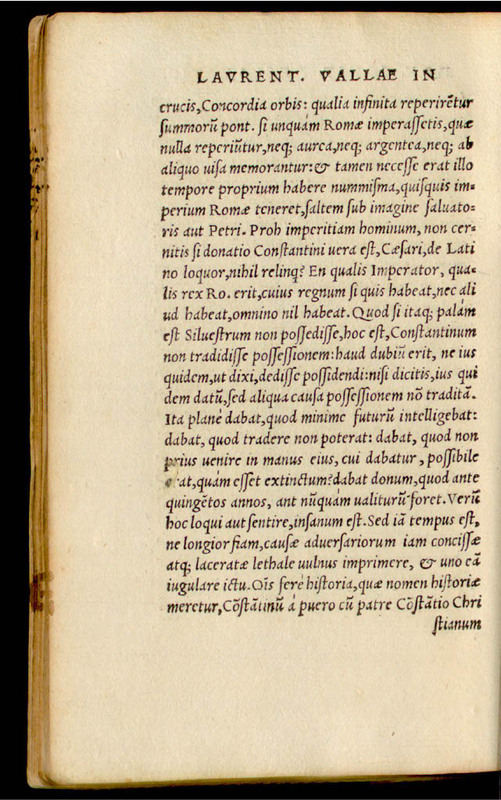 LAVRENT. VALLAE IN
crucis,Concordia orbis: qualia infinita reperirẽtur
summorũ pont. si unquám Romæ imperassetis,quæ
nulla reperiũtur,neq; aurea,neq; argentea,neq; ab
aliquo uisa memorantur:& tamen necesse erat illo
tempore proprium habere nummisma,quisquis im-
perium Romæ teneret,saltem sub imagine saluato-
ris aut Petri. Proh imperitiam hominum, non cer-
nitis si donatio Constantini uera est,Cæsari,de Lati
no loquor,nihil relinq? En qualis Imperator, qua-
lis rex Ro. erit,cuius regnum si quis habeat,nec ali
ud habeat,omnino nil habeat. Quod si itaq; palám
est Siluestrum non possedisse,hoc est,Constantinum
non tradidisse possessionem:haud dubiũ erit, ne ius
quidem,ut dixi,dedisse possidendi:nisi dicitis,ius qui
dem datũ,sed aliqua causa possessionem nõ traditã.
Ita planè dabat,quod minime futurũ intelligebat:
dabat, quod tradere non poterat: dabat, quod non
prius uenire in manus eius, cui dabatur, possibile
erat,quám esset extinctum?dabat donum,quod ante
quingẽtos annos, ant nũquám ualiturũ foret. Verũ
hoc loqui aut sentire,insanum est. Sed iã tempus est,
ne longior fiam,causæ aduersariorum iam concissæ
atq; laceratæ lethale uulnus imprimere, & uno eã
iugulare ictu. Oĩs ferè historia,quæ nomen historiæ
meretur,Cõstãtinũ á puero cũ patre Cõstãtio Chri
stianum